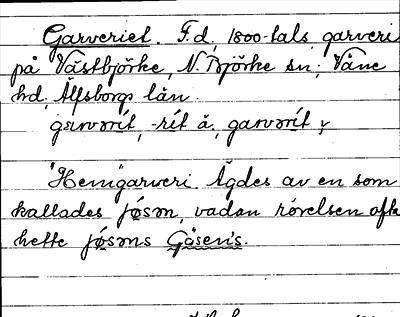 Garveriet. F.d. 1800-tals garveri
på Västbjörke, N. Björke sn; Väne
hd, Älfsborgs län.
garvərít, -rít ä, garvərít y
"Hemgarveri. Ägdes av en som
kallades jǿsən, vadan rörelsen ofta
hette jǿsəns Gösen's.